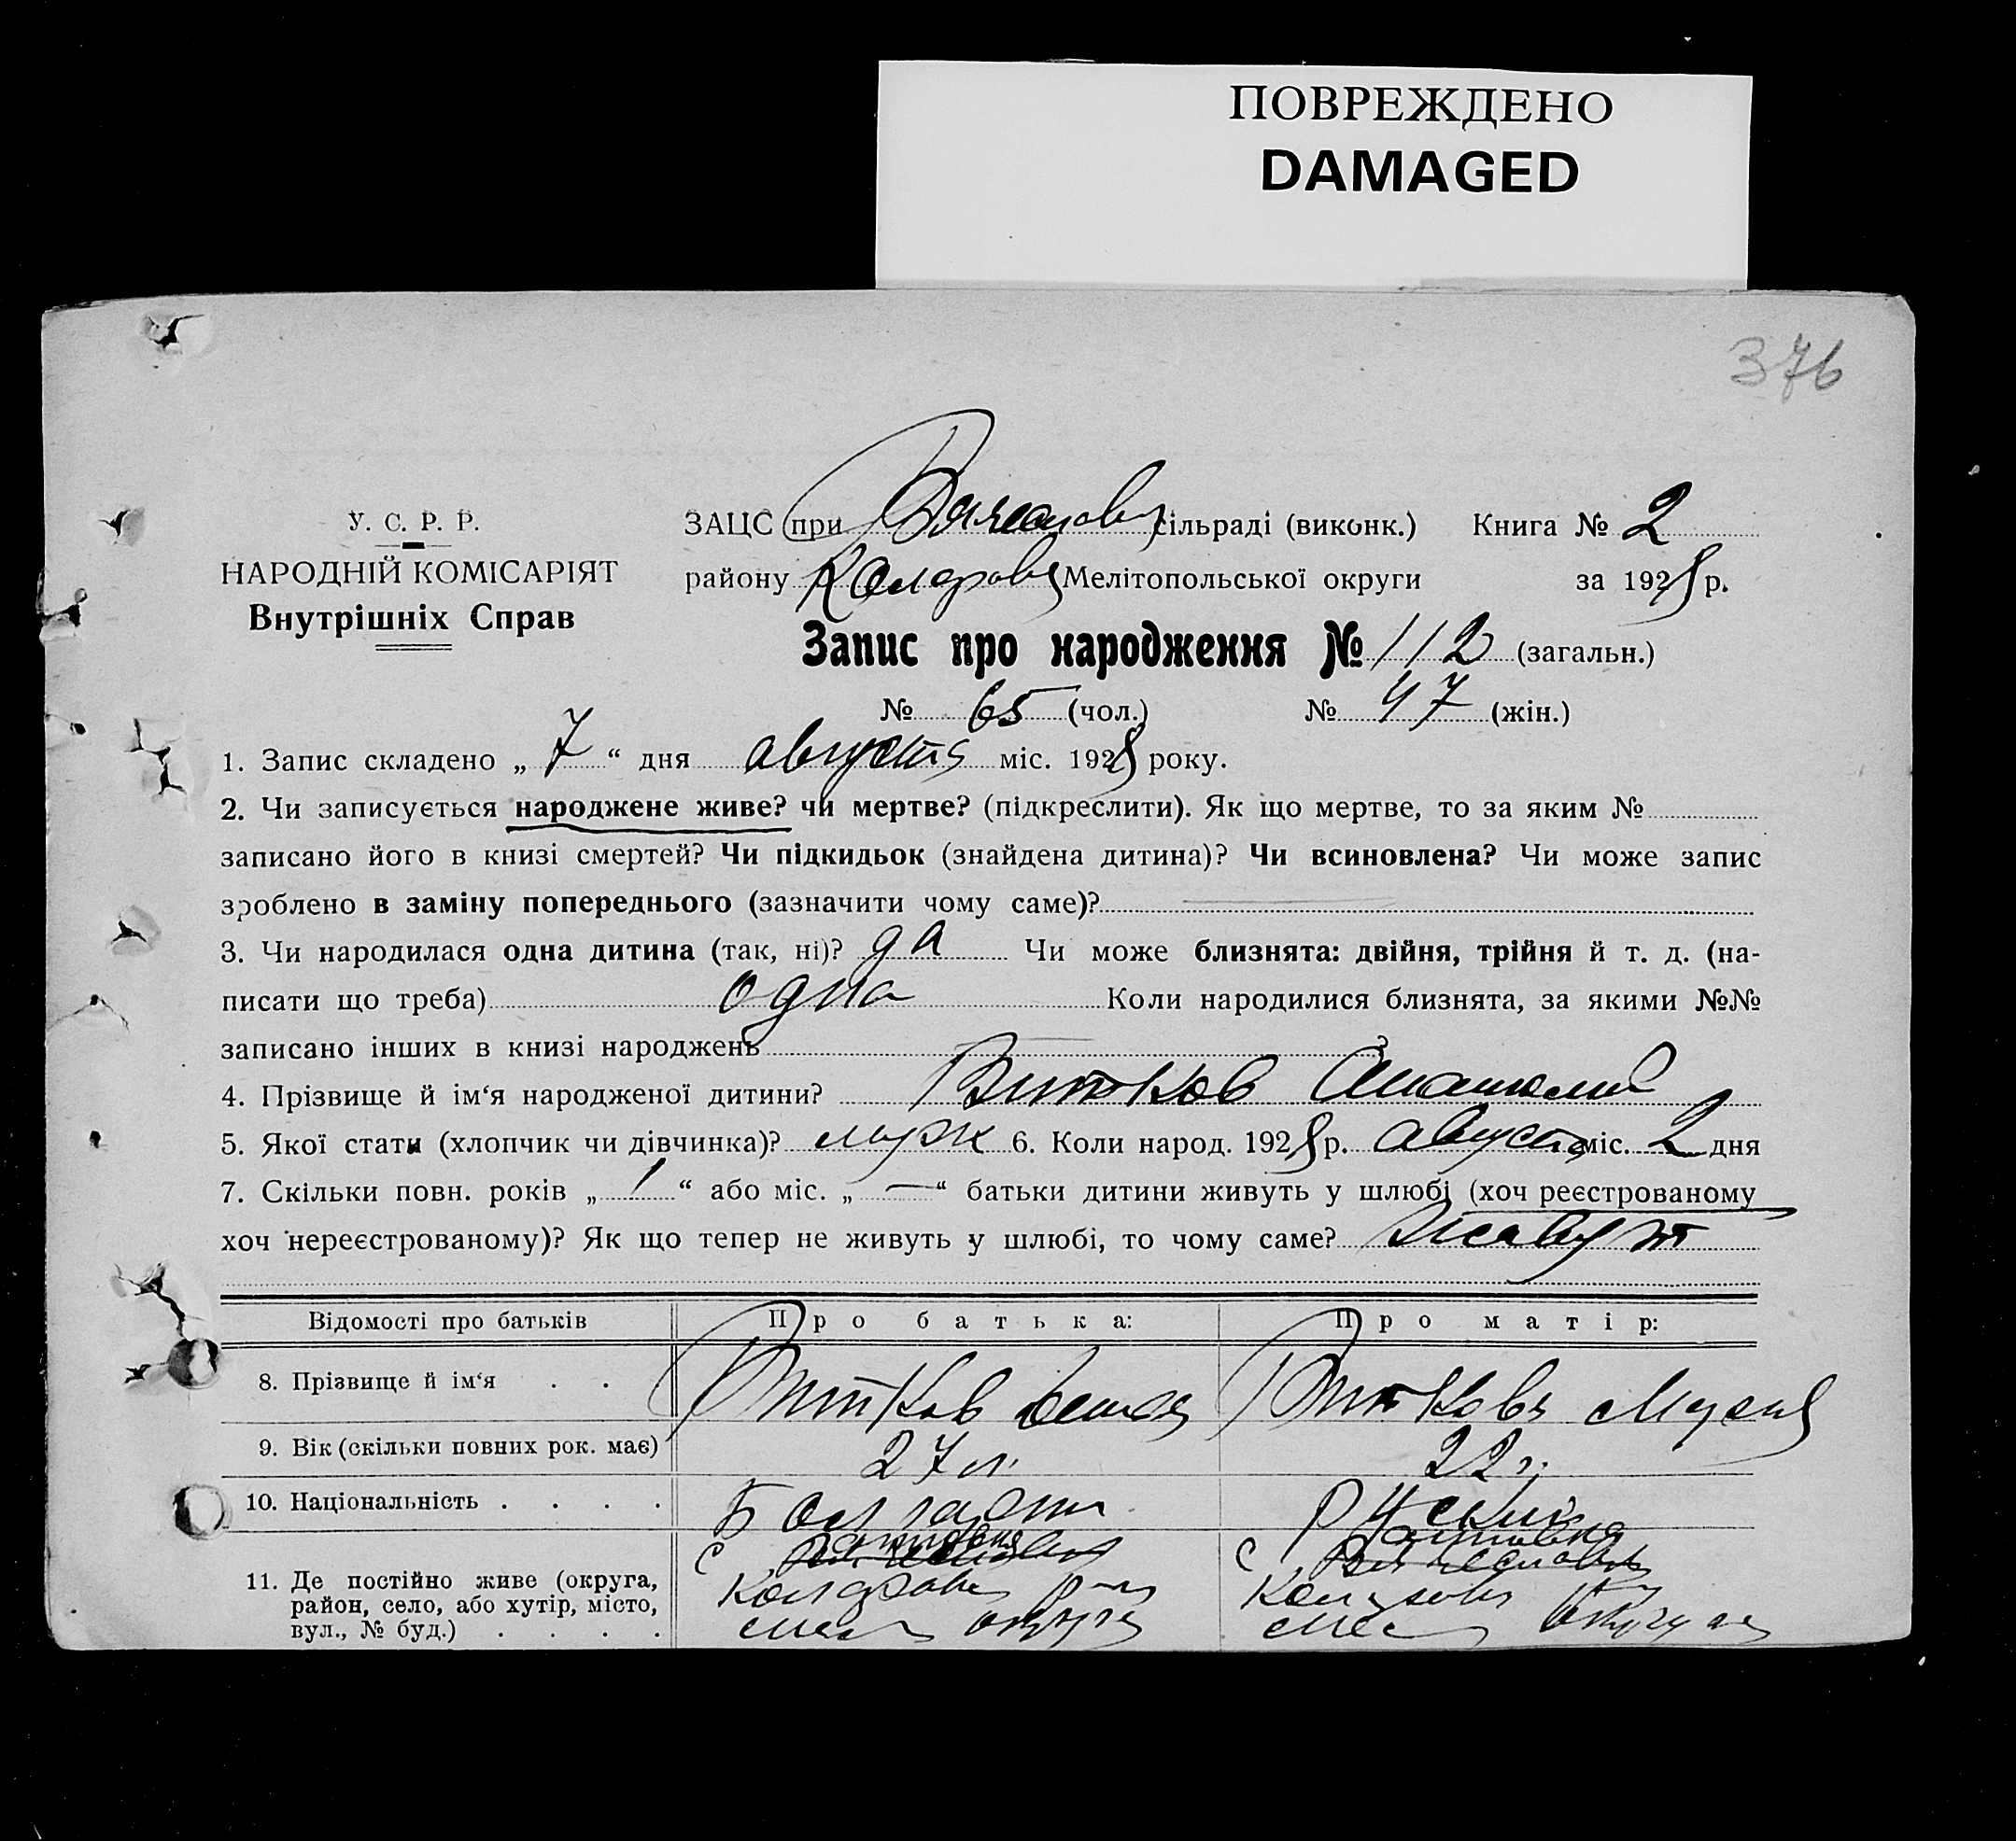 ПОВРЕЖДЕНО
DAMAGED
376
У. С. Р. Р.
НАРОДНІЙ КОМІСАРІЯТ
Внутрішніх Справ
ЗАЦС при сільраді (виконк.) Книга № 2
району Коларовс Мелітопольської округи за 1928 р.
Запис про народження № 112 (загальн.)
№ 65 (чол.) № 47 (жін.)
1. Запис складено „ 7 “ дня августа міс. 1928 року.
2. Чи записується народжене живе? чи мертве? (підкреслити). Як що мертве, то за яким №
записано його в книзі смертей? Чи підкидьок (знайдена дитина)? Чи всиновлена? Чи може запис
зроблено в заміну попереднього (зазначити чому саме)?
3. Чи народилася одна дитина (так, ні)? да Чи може близнята: двійня, трійня й т. д. (на-
писати що треба) одна Коли народилися близнята, за якими №№
записано інших в книзі народжень
4. Прізвище й ім‘я народженої дитини? Витков Анатолий
5. Якої стати (хлопчик чи дівчинка)? муж 6. Коли народ. 1928 р. августа міс. 2 дня
7. Скільки повн. років „ 1 “ або міс. „ — “ батьки дитини живуть у шлюбі (хоч реєстрованому
хоч нереєстрованому)? Як що тепер не живуть у шлюбі, то чому саме? живут
Відомості про батьків Про батька: Про матір:
8. Прізвище й ім‘я . . Витков Виткова
9. Вік (скільки повних рок. має) 27 л. 22 г.
10. Національність . . . . Болгарин русская
11. Де постійно живе (округа,
район, село, або хутір, місто,
вул., № буд.) . . . .
с
Коларовс р-на
Мел округа
с
Коларовс
Мел округа